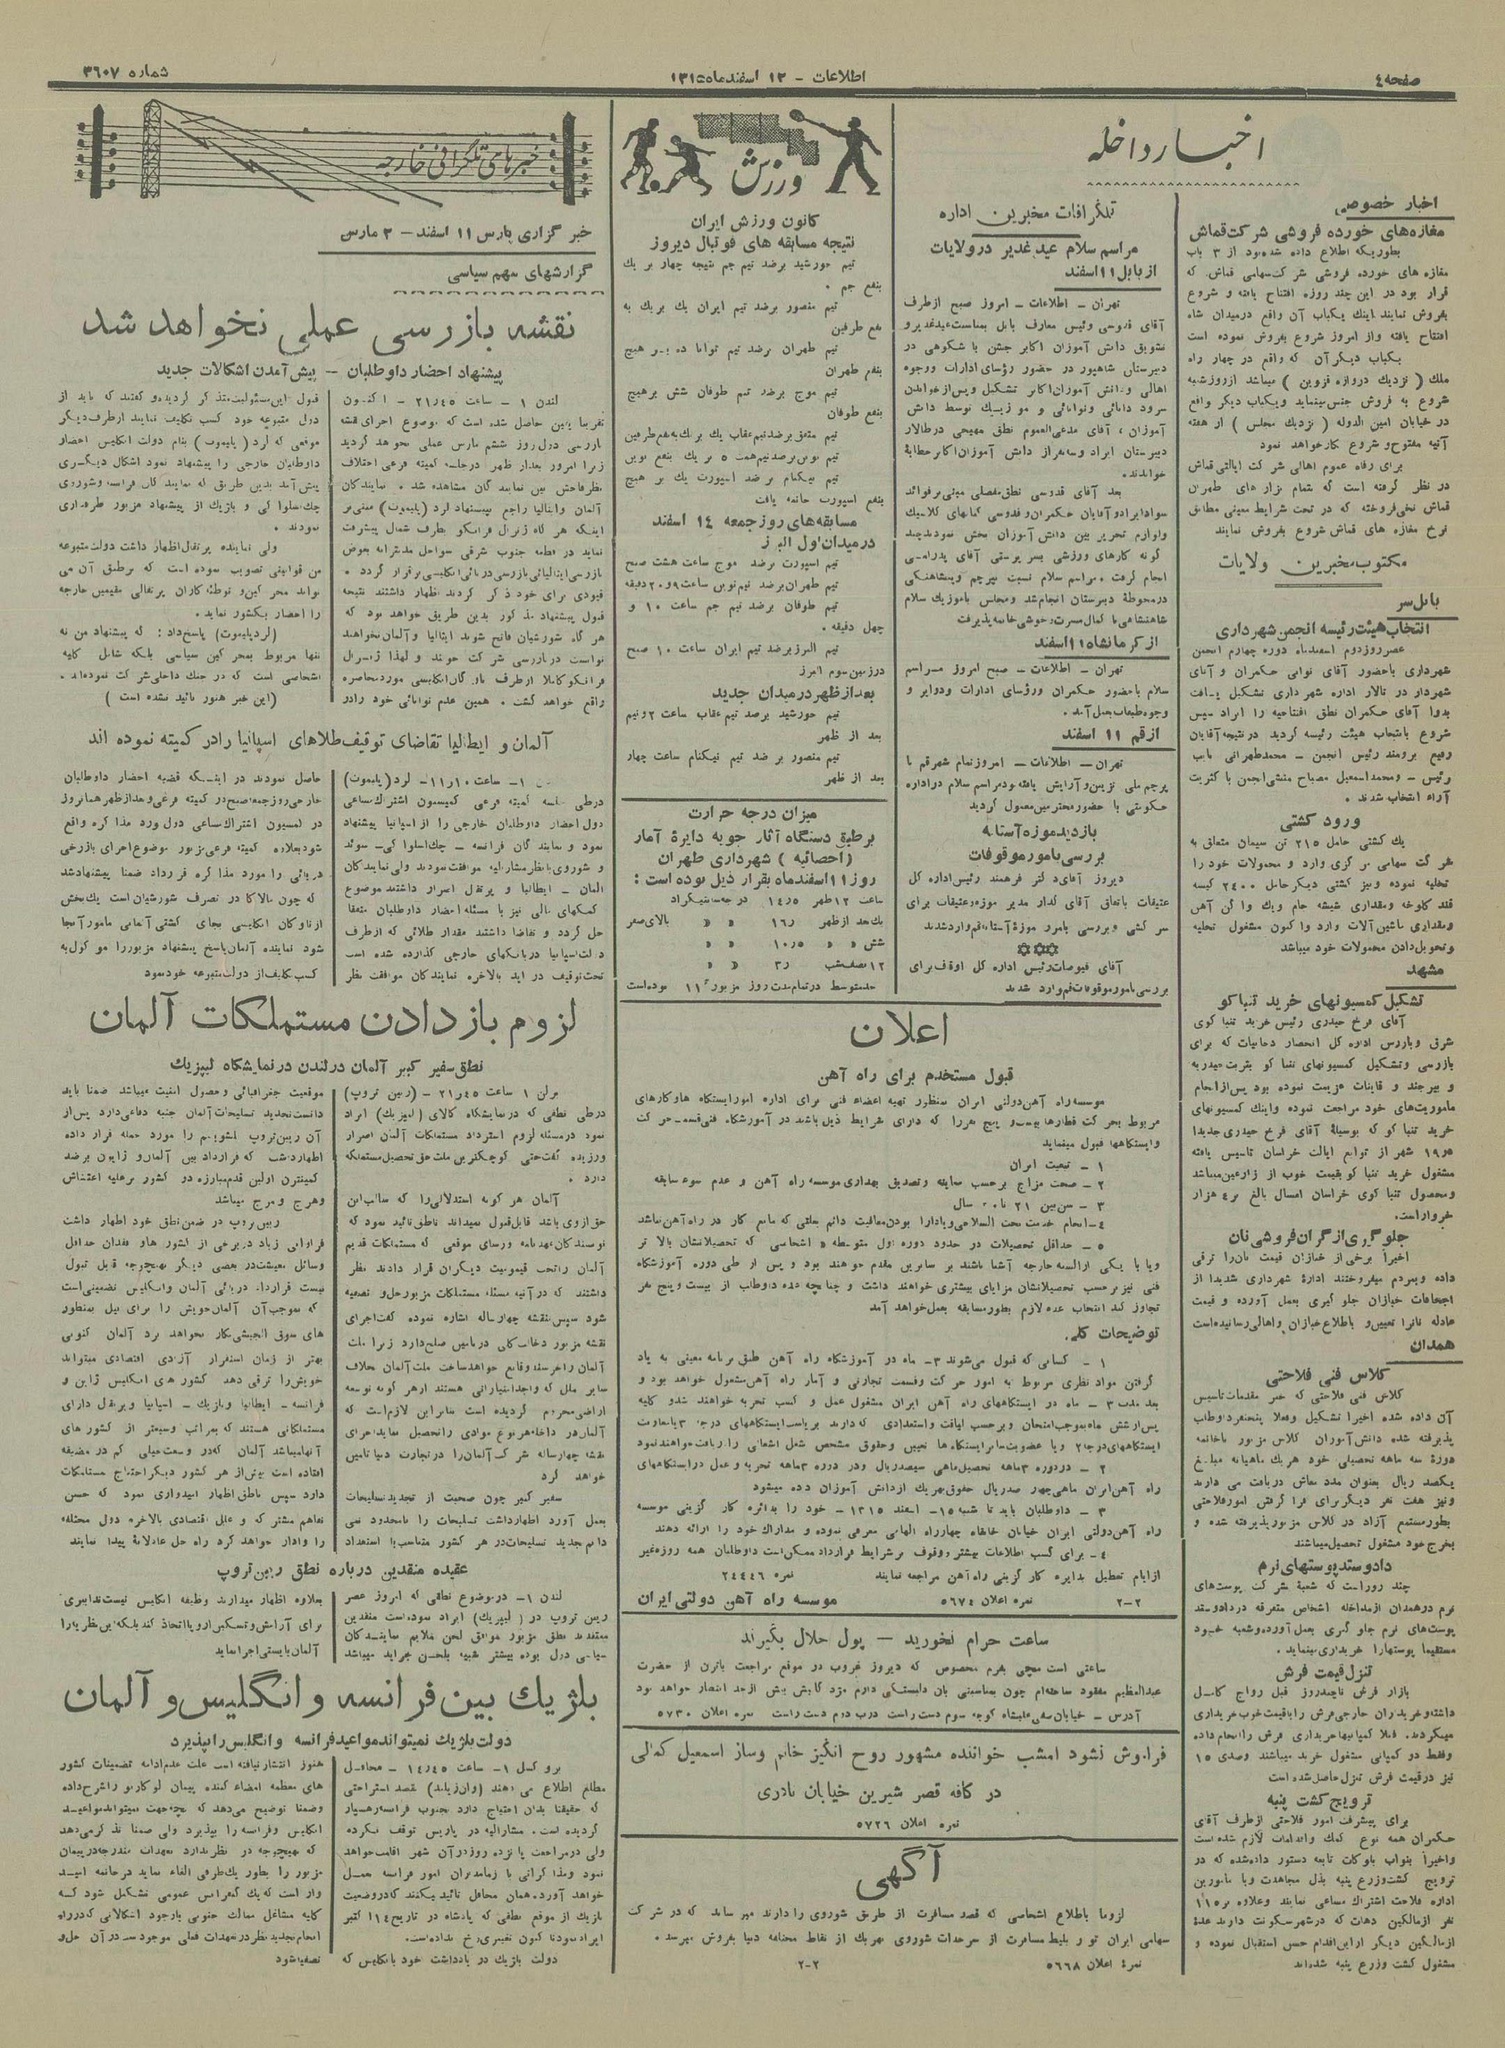 صفحه ٤
اطلاعات - ١٢ اسفند ماه ١٣١٥
شماره ٣٦٠٧
اخبار داخله
اخبار خصوصی
مغازه‌های خورده فروشی شرکت قماش
بطوریکه اطلاع داده شده بود از ٣ باب
مغازه های خورده فروشی شرکت سهامی قماش که
قرار بود در این چند روزه افتتاح یافته و شروع
بفروش نمایند اینك یکباب آن واقع در میدان شاه
افتتاح یافته و از امروز شروع بفروش نموده است
یکباب دیگر آن که واقع در چهار راه
ملك ( نزدیك دروازه قزوین ) میباشد از روز شنبه
شروع به فروش جنس مینماید و یکباب دیگر واقع
در خیابان امین الدوله ( نزدیك مجلس ) از هفته
آتیه مفتوح و شروع بکار خواهد نمود
برای رفاه عموم اهالی شرکت ایالتی قماش
در نظر گرفته است که بتمام بزاز های طهران
قماش نخی فروخته که در تحت شرایط معینی مطابق
نرخ مغازه های قماش شروع بفروش نمایند
مکتوب مخبرین ولایات
بابل سر
انتخاب هیئت رئیسه انجمن شهرداری
عصر روز دوم اسفندماه دوره چهارم انجمن
شهرداری باحضور آقای نوابی حکمران و آقای
شهردار در تالار اداره شهرداری تشکیل یافت
بدوا آقای حکمران نطق افتتاحیه را ایراد سپس
شروع بانتخاب هیئت رئیسه گردید در نتیجه آقایان
رفیع برومند رئیس انجمن - محمد طهرانی نایب
رئیس - ومحمد اسمعیل مصباح منشی انجمن با کثریت
آراء انتخاب شدند .
ورود کشتی
یك کشتی حامل ٢١٥ تن سیمان متعلق به
شرکت سهامی مرکزی وارد و محمولات خود را
تخلیه نموده ونیز کشتی دیگر حامل ٢٤٠٠ کیسه
قند کلوخه ومقداری شیشه جام ویك واگن آهن
ومقداری ماشین آلات وارد واکنون مشغول تخلیه
وتحویل دادن محمولات خود میباشد
مشهد
تشکیل کمسیونهای خرید تنباکو
آقای فرخ حیدری رئیس خرید تنباکوی
شرق وبازرس اداره کل انحصار دخانیات که برای
بازرسی وتشکیل کمسیونهای تنباکو بتربت حیدریه
و بیرجند و قاینات عزیمت نموده بود پس از انجام
ماموریت‌های خود مراجعت نموده واینك کمسیونهای
خرید تنباکو که بوسیله آقای فرخ حیدری جدیدا
مشغول خرید تنباکو بقیمت خوب از زارعین میباشد
ومحصول تنباکوی خراسان امسال بالغ بر ٤ هزار
خروار است.
جلوگیری از گران فروشی نان
اخیراً برخی از خبازان قیمت نان را ترقی
داده وبمردم میفروختند ادارهٔ شهرداری شدیدا از
اجحافات خبازان جلو گیری بعمل آورده و قیمت
عادله نانرا تعیین و باطلاع خبازان واهالی رسانیده است
همدان
کلاس فنی فلاحتی
کلاس فنی فلاحتی که خبر مقدمات تاسیس
آن داده شده اخیرا تشکیل وفعلا پنجنفر داوطلب
پذیرفته شده دانش آموزان کلاس مزبور باخاتمه
دورهٔ سه ماهه تحصیلی خود هریك ماهیانه مبلغ
یکصد ریال بعنوان مدد معاش دریافت می دارند
ونیز هفت نفر دیگر برای فرا گرفتن امور فلاحتی
بطور مستمع آزاد در کلاس مزبور پذیرفته شده و
بخرج خود مشغول تحصیل میباشند
دادوستد پوستهای نرم
چند روز است که شعبهٔ شرکت پوست‌های
نرم در همدان از مداخله اشخاص متفرقه در دادوستد
پوست‌های نرم جلو گیری بعمل آورده وشعبه خود
مستقیما پوستها را خریداری مینماید .
تنزل قیمت فرش
بازار فرش تا چند روز قبل رواج کامل
داشته و خریداران خارجی فرش را با قیمت خوب خریداری
میکردند. فعلا کمپانیها خریداری فرش را انجام داده
وفقط دو کمپانی مشغول خرید میباشند وصدی ١٥
نیز در قیمت فرش تنزل حاصل شده است
ترویج کشت پنبه
برای پیشرفت امور فلاحتی از طرف آقای
حکمران همه نوع کمك واقدامات لازم شده است
واخیراً بنواب بلوکات تابعه دستور داده شده که در
ترویج کشت وزرع پنبه بذل مجاهدت وبا مامورین
اداره فلاحت اشتراك مساعی نمایند وعلاوه بر ١١٥
نفر از مالکین دهات که در شهر سکونت دارند عدهٔ
از مالکین دیگر از این اقدام حسن استقبال نموده و
مشغول کشت وزرع پنبه شده‌اند
تلگرافات مخبرین اداره
مراسم سلام عید غدیر در ولایات
از بابل ١١ اسفند
تهران - اطلاعات - امروز صبح از طرف
آقای قدوسی رئیس معارف بابل بمناسبت عید غدیر و
تشویق دانش آموزان اکابر جشن با شکوهی در
دبیرستان شاهپور در حضور رؤسای ادارات ووجوه
اهالی ودانش آموزان اکابر تشکیل وپس از خواندن
سرود دانائی وتوانائی و موزیك توسط دانش
آموزان ، آقای مدعی العموم نطق مهیجی در تالار
دبیرستان ایراد وسه نفر از دانش آموزان اکابر خطابهٔ
خواندند.
بعد آقای قدوسی نطق مفصلی مبنی بر فوائد
سواد ایراد و آقایان حکمران وقدوسی کتابهای کلاسیك
ولوازم تحریر بین دانش آموزان پخش نمودند چند
گونه کارهای ورزشی بسرپرستی آقای پدرامی
انجام گرفت . مراسم سلام نسبت بپرچم وپیشاهنگی
در محوطهٔ دبیرستان انجام شد ومجلس باموزیك سلام
شاهنشاهی با کمال مسرت وخوشی خاتمه پذیرفت
از کرمانشاه ١١ اسفند
تهران - اطلاعات - صبح امروز مراسم
سلام باحضور حکمران ورؤسای ادارات ودوایر و
وجوه طبقات بعمل آمد .
از قم ١١ اسفند
تهران - اطلاعات - امروز تمام شهر قم با
پرچم ملی تزیین و آرایش یافته ودر مراسم سلام در اداره
حکومتی با حضور محترمین معمول گردید
بازدید موزه آستانه
بررسی بامور موقوفات
دیروز آقای دکتر فرهمند رئیس اداره کل
عتیقات باتفاق آقای گدار مدیر موزه عتیقات برای
سرکشی و بررسی بامور موزهٔ آستانه قم وارد شدند
آقای فیوضات رئیس اداره کل اوقاف برای
بررسی بامور موقوفات قم وارد شدند
ورزش
کانون ورزش ایران
نتیجه مسابقه های فوتبال دیروز
تیم خورشید برضد تیم جم نتیجه چهار بر یك
بنفع جم .
تیم منصور برضد تیم ایران یك بریك به
نفع طرفین
تیم طهران برضد تیم توانا ده بر هیچ
بنفع طهران
تیم موج برضد تیم طوفان شش بر هیچ
بنفع طوفان
تیم متفق برضد تیم عقاب یك بریك به نفع طرفین
تیم نوین برضد تیم همت ٥ بر یك بنفع نوین
تیم نیکنام برضد اسپورت یك بر هیچ
بنفع اسپورت خاتمه یافت
مسابقه های روز جمعه ١٤ اسفند
در میدان اول البرز
تیم اسپورت برضد موج ساعت هشت صبح
تیم طهران برضد تیم نوین ساعت ٩ و ٢٠ دقیقه
تیم طوفان برضد تیم جم ساعت ١٠ و
چهل دقیقه .
تیم البرز برضد تیم ایران ساعت ١٠ صبح
در زمین سوم البرز
بعد از ظهر در میدان جدید
تیم خورشید برضد تیم عقاب ساعت ٢ ونیم
بعد از ظهر
تیم منصور برضد تیم نیکنام ساعت چهار
بعد از ظهر
میزان درجه حرارت
برطبق دستگاه آثار جویه دایرهٔ آمار
(احصائیه ) شهرداری طهران
روز ١١ اسفند ماه بقرار ذیل بوده است :
ساعت ١٢ ظهر ١٤ر٥ درجه سانتیگراد
یك بعد از ظهر ١٦ر « « بالای صفر
شش « « ١٠ر٥ « «
١٢ نصف شب ٣ر « «
حد متوسط در تمام مدت روز مزبور ١١° بوده است
اعلان
قبول مستخدم برای راه آهن
موسسه راه آهن دولتی ایران بمنظور تهیه اعضاء فنی برای اداره امور ایستگاه ها و کارهای
مربوط بحرکت قطارها بیست و پنج نفر را که دارای شرایط ذیل باشند در آموزشگاه فنی قسمت حرکت
وایستگاهها قبول مینماید
١ - تبعیت ایران
٢ - صحت مزاج برحسب معاینه وتصدیق بهداری موسسه راه آهن و عدم سوء سابقه
٣ - سن بین ٢١ تا ٣٠ سال
٤ - انجام خدمت تحت السلاحی ویا دارا بودن معافیت دائم بعلتی که مانع کار در راه آهن نباشد
٥ - حداقل تحصیلات در حدود دوره اول متوسطه . اشخاصی که تحصیلاتشان بالا تر
ویا با یکی از السنه خارجه آشنا باشند بر سایرین مقدم خواهند بود و پس از طی دوره آموزشگاه
فنی نیز برحسب تحصیلاتشان مزایای بیشتری خواهند داشت و چنانچه عده داوطلب از بیست و پنج نفر
تجاوز کند انتخاب عده لازم بطور مسابقه بعمل خواهد آمد
توضیحات کلی
١ - کسانی که قبول می‌شوند ٣ ماه در آموزشگاه راه آهن طبق برنامه معینی به یاد
گرفتن مواد نظری مربوط به امور حرکت وقسمت تجارتی و آمار راه آهن مشغول خواهند بود و
بعد مدت ٣ ماه در ایستگاههای راه آهن ایران مشغول عمل و کسب تجربه خواهند شد و کلیه
پس از شش ماه بموجب امتحان وبرحسب لیاقت واستعدادی که دارند بریاست ایستگاههای درجه ٣ یا معاونت
ایستگاههای درجه ٢ ویا عضویت سایر ایستگاه‌ها تعیین وحقوق مشخص شغل اشغالی را دریافت خواهند نمود
٢ - در دوره ٣ ماهه تحصیل ماهی سیصد ریال ودر دوره ٣ ماهه تجربه و عمل در ایستگاههای
راه آهن ایران ماهی چهارصد ریال حقوق بهریك از دانش آموزان داده میشود
٣ - داوطلبان باید تا شنبه ١٥ اسفند ١٣١٥ - خود را بدائره کار گزینی موسسه
راه آهن دولتی ایران خیابان خانقاه چهارراه الهامی معرفی نموده و مدارك خود را ارائه دهند
٤ - برای کسب اطلاعات بیشتر ووقوف بر شرایط قرارداد ممکن است داوطلبان همه روزه غیر
از ایام تعطیل بدایره کار گزینی راه آهن مراجعه نمایند نمره ٢٤٤٤٦
٢-٢ نمره اعلان ٥٦٧٤ موسسه راه آهن دولتی ایران
ساعت حرام نخورید - پول حلال بگیرید
ساعتی است مچی بفرم مخصوص که دیروز غروب در موقع مراجعت باترن از حضرت
عبدالعظیم مفقود ساخته‌ام چون بمناسبتی بآن دلبستگی دارم مژدگانیش بیش از حد انتظار خواهد بود
آدرس - خیابان صفی علیشاه کوچه سوم دست راست درب دوم دست راست نمره اعلان ٥٧٣٠
فراموش نشود امشب خواننده مشهور روح انگیز خانم وساز اسمعیل کمالی
در کافه قصر شیرین خیابان نادری
نمره اعلان ٥٧٢٦
آگهی
لزوما باطلاع اشخاصی که قصد مسافرت از طریق شوروی را دارند میرساند که در شرکت
سهامی ایران تور بلیط مسافرت از سرحدات شوروی بهریك از نقاط مختلفه دنیا بفروش میرسد .
نمرهٔ اعلان ٥٦٦٨ ٢-٢
خبرهای تلگرافی خارجه
خبر گزاری پارس ١١ اسفند - ٢ مارس
گزارشهای مهم سیاسی
نقشه بازرسی عملی نخواهد شد
پیشنهاد احضار داوطلبان - پیش آمدن اشکالات جدید
لندن ١ - ساعت ٢١ر٤٥ - اکنون
تقریبا یقین حاصل شده است که موضوع اجرای نقشه
بازرسی در روز ششم مارس عملی نخواهد گردید
زیرا امروز بعد از ظهر در جلسه کمیته فرعی اختلاف
نظر فاحش بین نمایند گان مشاهده شد . نمایندگان
آلمان وایتالیا راجع بپیشنهاد لرد (پلیموت) مبنی بر
اینکه هر گاه ژنرال فرانکو بطرف شمال پیشرفت
نماید در قطعه جنوب شرقی سواحل مدیترانه بعوض
بازرسی ایتالیائی بازرسی دریائی انگلیسی برقرار گردد .
قیودی برای خود ذکر کردند اظهار داشتند نتیجه
قبول پیشنهاد مذکور بدین طریق خواهد بود که
هر گاه شورشیان فاتح شوند ایتالیا و آلمان نخواهند
توانست در بازرسی شرکت جویند و لهذا ژنرال
فرانکو کاملا از طرف ناوگان انگلیسی مورد محاصره
واقع خواهد گشت . همین عدم توانائی خود را در
قبول این مسئولیت متذکر گردیده و گفتند که باید از
دول متبوعه خود کسب تکلیف نمایند از طرف دیگر
موقعی که لرد (پلیموت) بنام دولت انگلیس احضار
داوطلبان خارجی را پیشنهاد نمود اشکال دیگری
پیش آمد بدین طریق که نمایندگان فرانسه و شوروی
چك‌اسلواکی و بلژیك از پیشنهاد مزبور طرفداری
نمودند .
ولی نماینده پرتقال اظهار داشت دولت متبوعه
من قوانینی تصویب نموده است که برطبق آن می
تواند محرکین و توطئه‌کاران پرتقالی مقیمین خارجه
را احضار بکشور نماید .
(لرد پلیموت) پاسخ داد : که پیشنهاد من نه
تنها مربوط بمحرکین سیاسی بلکه شامل کلیه
اشخاصی است که در جنك داخلی شرکت نموده‌اند .
(این خبر هنوز تائید نشده است )
آلمان و ایطالیا تقاضای توقیف طلاهای اسپانیا را در کمیته نموده اند
١ - ساعت ١٠ر١١ - لرد (پلیموت)
در طی جلسه کمیته فرعی کمیسیون اشتراك مساعی
دول احضار داوطلبان خارجی را از اسپانیا پیشنهاد
نمود و نمایند گان فرانسه - چك اسلواکی - سوئد
و شوروی با نظر مشارالیه موافقت نمودند ولی نمایندگان
آلمان - ایطالیا و پرتقال اصرار داشتند موضوع
کمکهای مالی نیز با مسئله احضار داوطلبان متفقا
حل گردد و تقاضا داشتند مقدار طلائی که از طرف
دولت اسپانیا در بانکهای خارجی گذارده شده است
تحت توقیف در آید بالاخره نمایندگان موافقت نظر
حاصل نمودند در اینکه قضیه احضار داوطلبان
خارجی روز جمعه صبح در کمیته فرعی و بعد از ظهر همانروز
در کمسیون اشتراك مساعی دول مورد مذاکره واقع
شود بعلاوه کمیته فرعی مزبور موضوع اجرای بازرسی
دریائی را مورد مذاکره قرار داد ضمنا پیشنهاد شد
که چون مالاکا در تصرف شورشیان است یك بخش
از ناوگان انگلیسی بجای کشتی آلمانی مامور آنجا
شود نماینده آلمان پاسخ پیشنهاد مزبور را موکول به
کسب تکلیف از دولت متبوعه خود نمود
لزوم باز دادن مستملکات آلمان
نطق سفیر کبیر آلمان در لندن در نمایشگاه لیپزیك
برلن ١ ساعت ٢١ر٤٥ - (ریبن تروپ)
در طی نطقی که در نمایشگاه کالای (لیپزیك) ایراد
نمود در مسئله لزوم استرداد مستملکات آلمان اصرار
ورزیده گفت حتی کوچکترین ملت حق تحصیل مستملکه
دارد .
آلمان هر گونه استدلالی را که سالب این
حق از وی باشد قابل قبول نمیداند ناطق تائید نمود که
نویسندگان عهدنامه ورسای موقعی که مستملکات قدیم
آلمان را تحت قیمومیت دیگران قرار دادند نظر
داشتند که در آتیه مسئله مستملکات مزبور حل و تصفیه
شود سپس بنقشه چهارساله اشاره نموده گفت اجرای
نقشه مزبور دخالت کلی در تامین صلح دارد زیرا ملت
آلمان را خرسند وقانع خواهد ساخت ملت آلمان بخلاف
سایر ملل که واجد امتیازاتی هستند از هر گونه توسعه
اراضی محروم گردیده است بنابراین لازم است که
آلمان در داخله هر نوع موادی را تحصیل نماید اجرای
نقشه چهارساله شرکت آلمان را در تجارت دنیا تامین
خواهد کرد
سفیر کبیر چون صحبت از تحدید تسلیحات
بعمل آورد اظهار داشت تسلیحات را نامحدود نمی
دانم تحدید تسلیحات در هر کشور متناسب با استعداد
موقعیت جغرافیائی وحصول امنیت میباشد ضمنا باید
دانست تحدید تسلیحات آلمان جنبه دفاعی دارد پس از
آن ریبن تروپ بلشویسم را مورد حمله قرار داده
اظهار داشت که قرارداد بین آلمان و ژاپون برضد
کمینترن اولین قدم مبارزه دو کشور برعلیه اغتشاش
و هرج و مرج میباشد
ریبن تروپ در ضمن نطق خود اظهار داشت
فراوانی زیاد در برخی از کشور ها و فقدان حداقل
وسائل معیشت در بعضی دیگر بهیچوجه قابل قبول
نیست قرارداد دریائی آلمان وانگلیس تضمینی است
که بموجب آن آلمان خویش را برای نیل بمنظور
های سوق الجیشی بکار نخواهد برد آلمان کنونی
بهتر از زمان استقرار آزادی اقتصادی میتواند
خویش را ترقی دهد کشور های انگلیس ژاپن و
فرانسه - ایطالیا وبلژیك - اسپانیا وپرتقال دارای
مستملکاتی هستند که بمراتب وسیعتر از کشور های
آنها میباشد آلمان که در وسعت خیلی کم در مضیقه
افتاده است بیش از هر کشور دیگر احتیاج مستملکات
دارد سپس ناطق اظهار امیدواری نمود که حسن
تفاهم مشترك و علل اقتصادی بالاخره دول مختلفه
را وادار خواهد کرد راه حل عادلانهٔ پیدا نمایند
عقیده منقدین درباره نطق ریبن تروپ
لندن ١ - در موضوع نطقی که امروز عصر
ریبن تروپ در ( لیپزیك) ایراد نموده است منقدین
معتقدند نطق مزبور موافق لحن ملایم نمایندگان
سیاسی دول بوده بیشتر شبیه بلحن جراید میباشد
بعلاوه اظهار میدارند وظیفه انگلیس نیست تدابیری
برای آرامش وتسکین اروپا اتخاذ کند بلکه این نظریه را
آلمان بایستی اجرا نماید
بلژیك بین فرانسه و انگلیس و آلمان
دولت بلژیك نمیتواند مواعید فرانسه وانگلیس را بپذیرد
بروکسل ١ - ساعت ١٤ر٤٥ - محافل
مطلع اطلاع می دهند (وان زیلند) بقصد استراحتی
که حقیقتا بدان احتیاج دارد بجنوب فرانسه رهسپار
گردیده است . مشارالیه در پاریس توقف نکرده
ولی در مراجعت یا نزده روز در آن شهر اقامت خواهد
نمود ومذاکراتی با زمامداران امور فرانسه بعمل
خواهد آورد. همان محافل تائید میکنند که در وضعیت
بلژیك از موقع نطقی که پادشاه در تاریخ ١٤ اکتبر
ایراد نموده تا کنون تغییری رخ نداده است.
دولت بلژیك در یادداشت خود بانگلیس که
هنوز انتشار نیافته است علت عدم ادامه تضمینات کشور
های معظمه امضاء کننده پیمان لوکارنو را شرح داده
وضمنا توضیح می‌دهد که بچه جهت نمیتواند مواعید
انگلیس وفرانسه را بپذیرد ولی ضمنا تذکر می‌دهد
که بهیچوجه در نظر ندارد تعهدات مندرجه در پیمان
مزبور را بطور یك طرفی الغاء نماید در خاتمه امید
وار است که یك کنفرانس عمومی تشکیل شود که
کلیه مشاغل ممالك جنوبی باوجود اشکالاتی که در راه
انجام تجدید نظر در تعهدات فعلی موجود است در آن حل و
تصفیه شود